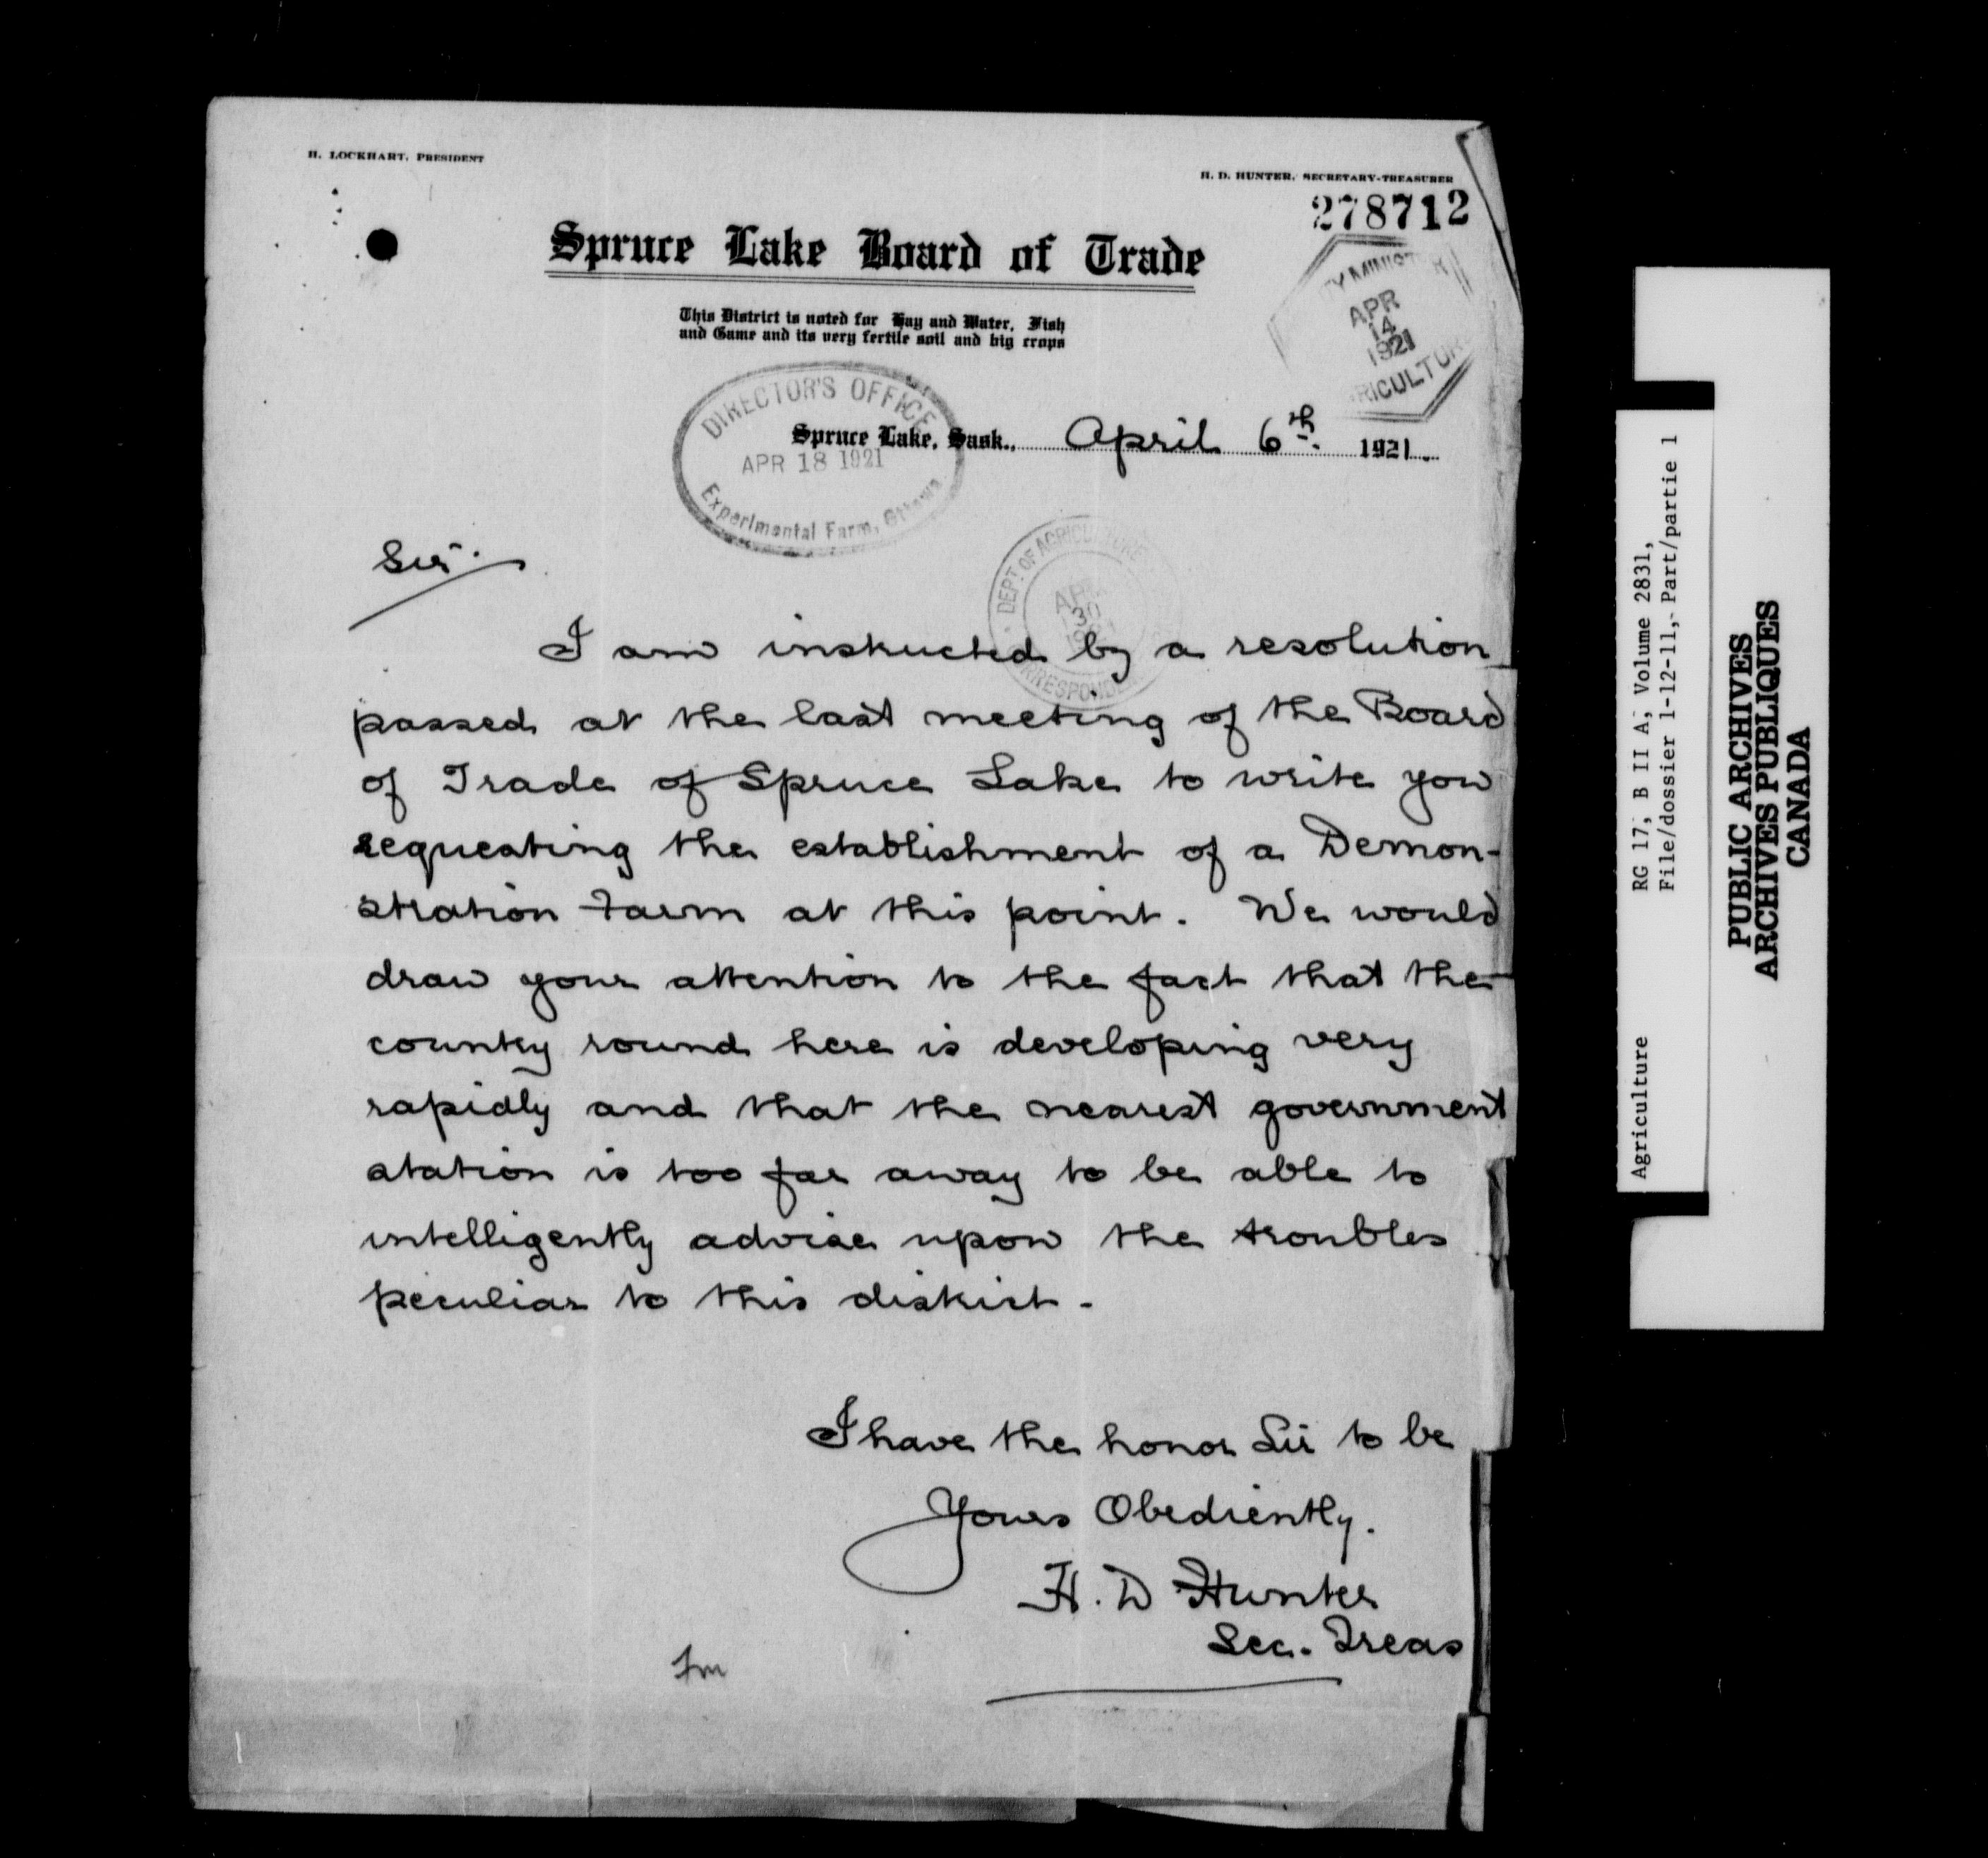 H. LOCKHART, PRESIDENT
H. D. HUNTER, SECRETARY-TREASURER
278712
Spruce Lake Board of Trade
This District is noted for Hay and Water, Fish
and Game and its very fertile soil and big crops
TY MINISTER
APR
14
1921
RICULTUR
DIRECTOR'S OFFICE
APR 18 1921
Experimental Farm, Ottawa
Spruce Lake, Sask., April 6th 1921.
DEPT OF AGRICULTURE
APR
30
RRESPONDEN
Sir:
I am instructed by a resolution
passed at the last meeting of the Board
of Trade of Spruce Lake to write you
requesting the establishment of a Demon-
stration Farm at this point. We would
draw your attention to the fact that the
country round here is developing very
rapidly and that the nearest government
station is too far away to be able to
intelligently advise upon the troubles
peculiar to this district.
I have the honor Sir to be
Yours Obediently.
H. D Hunter
Sec. Treas
Agriculture RG 17, B II A, Volume 2831,
File/dossier 1-12-11, Part/partie 1
PUBLIC ARCHIVES
ARCHIVES PUBLIQUES
CANADA